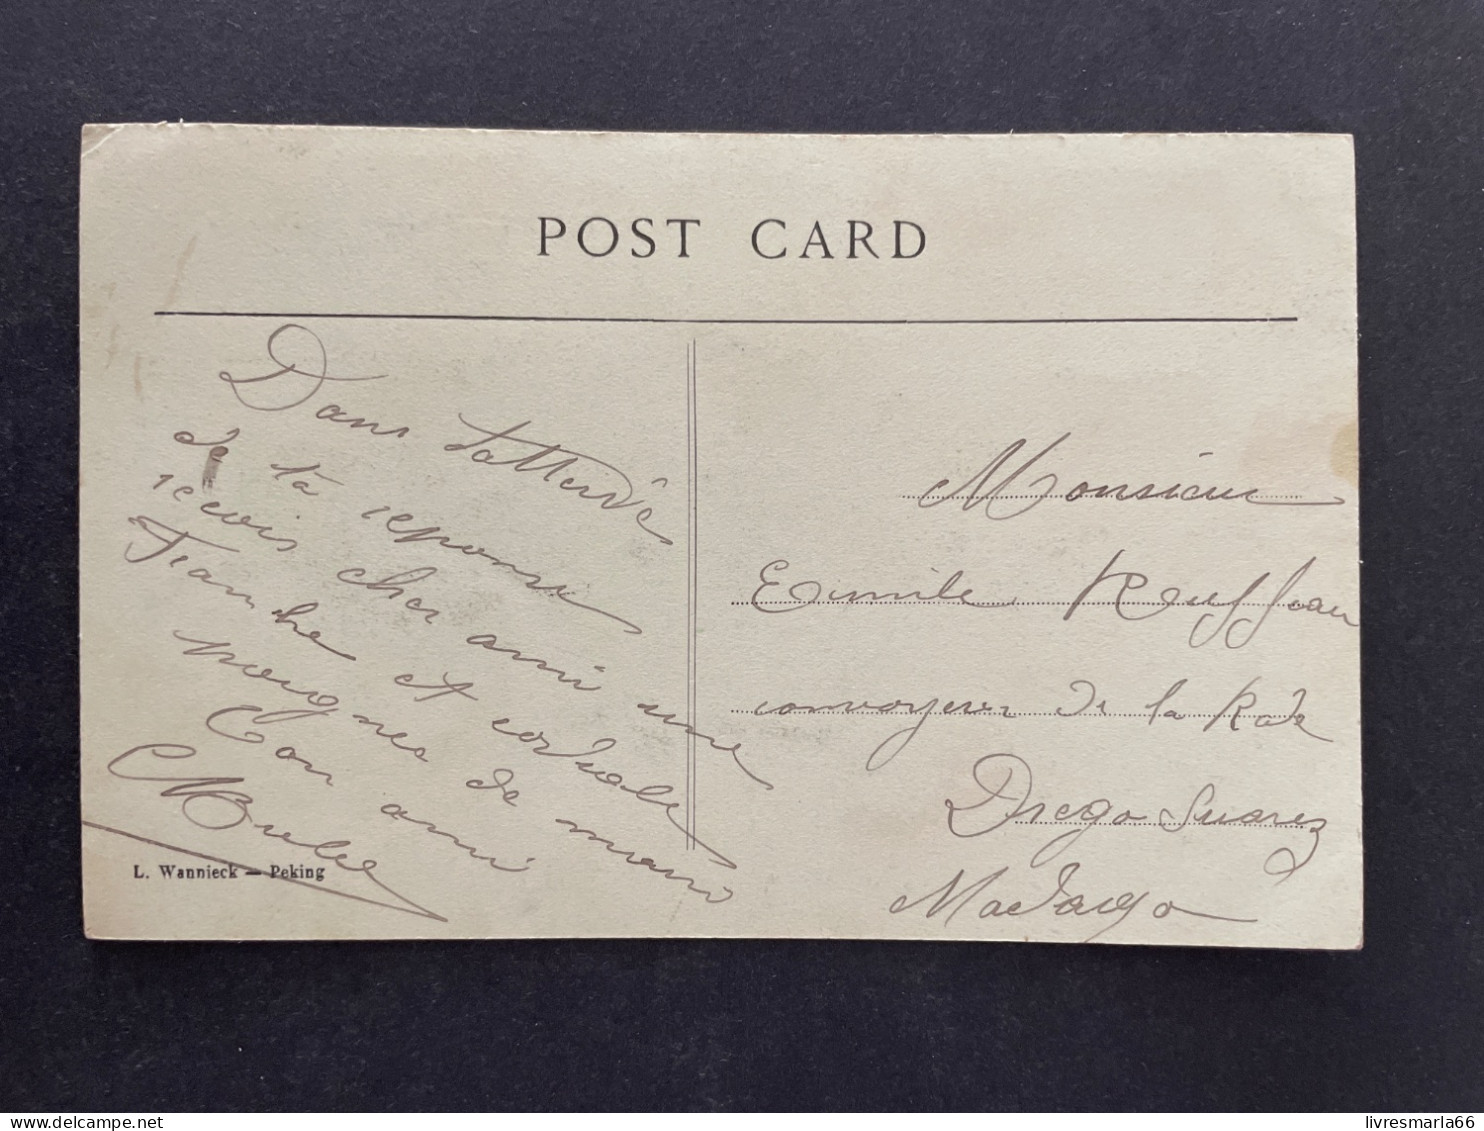 POST CARD
Dans l'attende
de ta reponse
recois cher ami une
Franche et cordiale
poignee de mains
Ton ami
L. Wannieck — Peking
Monsieur
Emile
convoyeur de la Rade
Diego Suarez
Madaga
livresmarla66